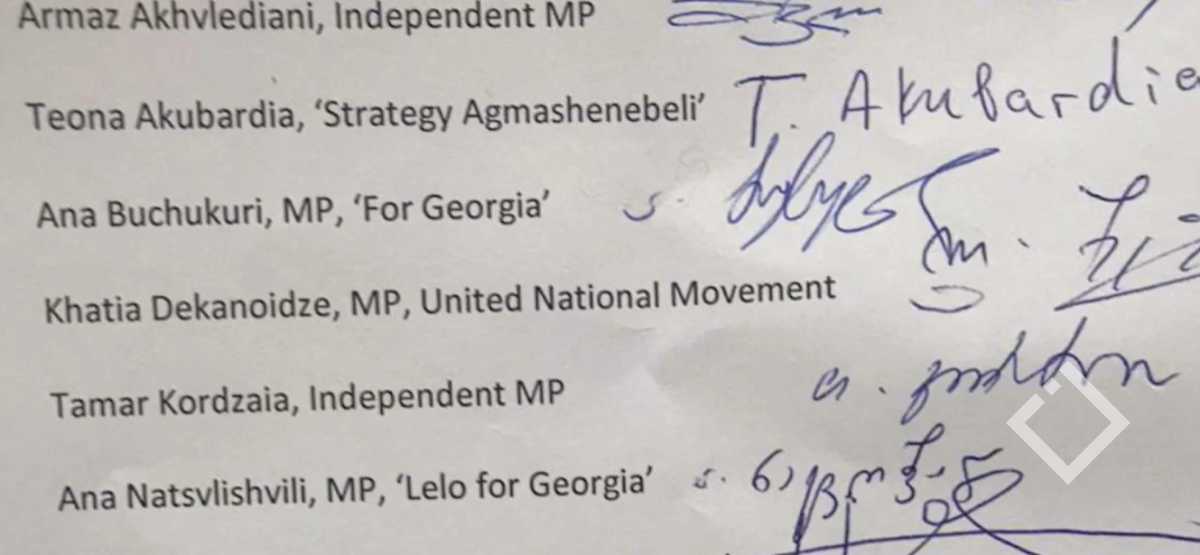 Armaz Akhvlediani, Independent MP
Teona Akubardia, ‘Strategy Agmashenebeli’ T. Akubardia
Ana Buchukuri, MP, ‘For Georgia’
Khatia Dekanoidze, MP, United National Movement
Tamar Kordzaia, Independent MP
Ana Natsvlishvili, MP, ‘Lelo for Georgia’